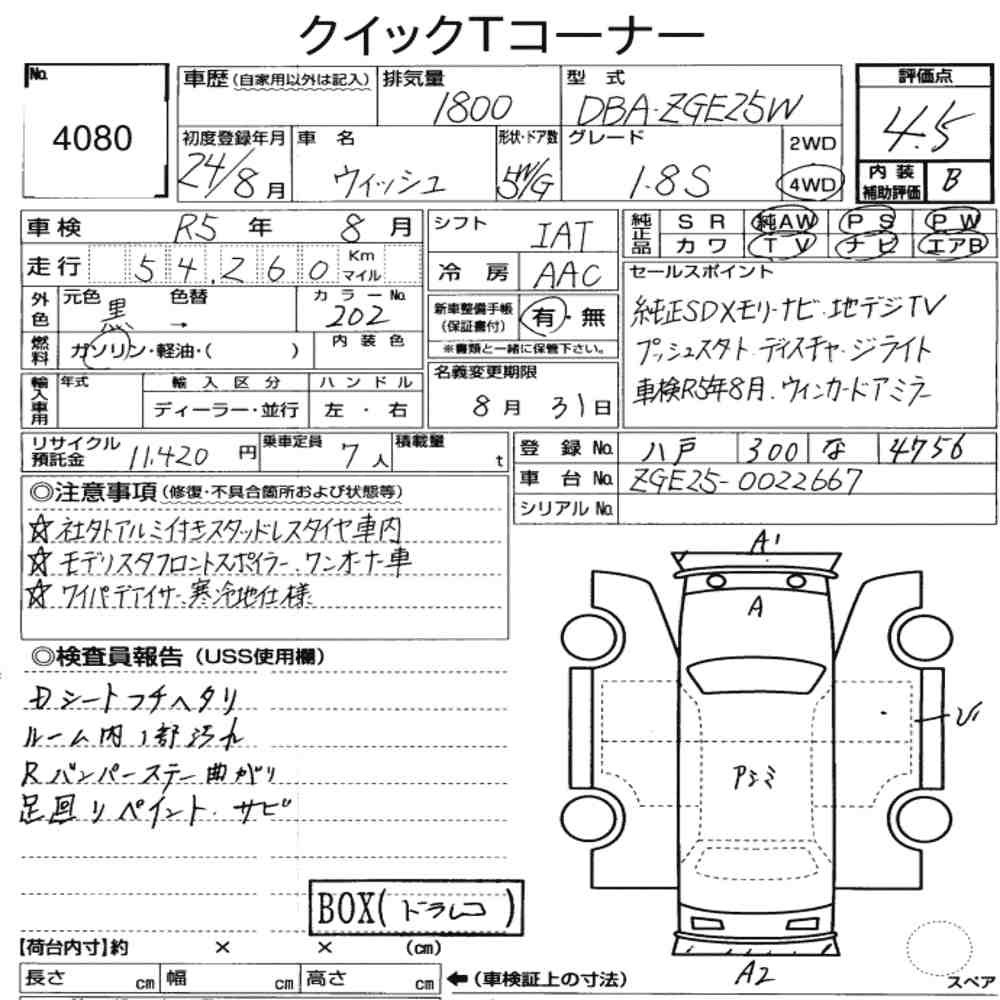 クイックTコーナー
No.
4080
車歴(自家用以外は記入)
排気量
1800
型 式
DBA-ZGE25W
評価点
4.5
初度登録年月
24/8月
車 名
ウィッシュ
形状・ドア数
5W/G
グレード
1.8S
2WD
4WD
内装
補助評価
B
車検 R5年 8月
シフト
IAT
純正品
SR 純AW PS PW
カワ TV ナビ エアB
走行 54,260 Km マイル
冷房
AAC
セールスポイント
純正SDメモリーナビ・地デジTV
プッシュスタート・ディスチャージライト
車検R5年8月・ウィンカードアミラー
外色
元色 黒 → 色替
カラーNo.
202
新車整備手帳
(保証書付)
有・無
※書類と一緒に保管下さい。
燃料
ガソリン・軽油・( )
内装色
輸入車用
年式
輸入区分
ディーラー・並行
ハンドル
左・右
名義変更期限
8月 31日
リサイクル
預託金
11,420円
乗車定員
7人
積載量
t
登録No. 八戸 300 な 4756
車台No. ZGE25-0022667
シリアルNo.
◎注意事項(修復・不具合箇所および状態等)
☆社外アルミ付きスタッドレスタイヤ車内
☆モデリスタフロントスポイラー、ワンオーナー車
☆ワイパーデアイサー寒冷地仕様
◎検査員報告(USS使用欄)
Dシートフチヘタリ
ルーム内1部汚れ
Rバンパーステー曲がり
足回りペイント・サビ
BOX(ドラレコ)
A1
A
アシミ
A2
スペア
【荷台内寸】約 × × (cm)
長さ cm 幅 cm 高さ cm ←(車検証上の寸法)